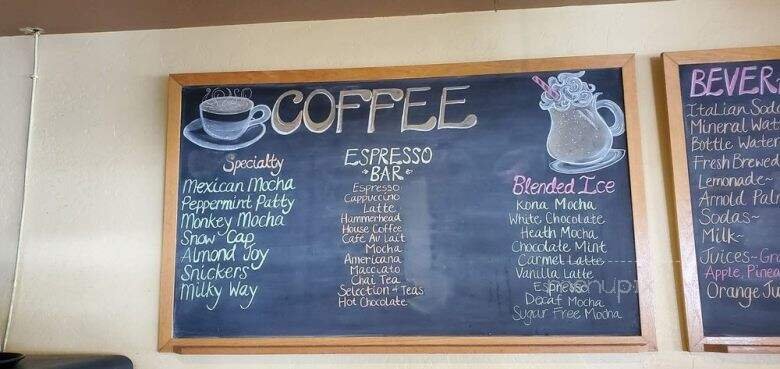 COFFEE
Specialty
Mexican Mocha
Peppermint Patty
Monkey Mocha
Snow Cap
Almond Joy
Snickers
Milky Way
ESPRESSO
BAR
Espresso
Cappuccino
Latte
Hammerhead
House Coffee
Cafe Au Lait
Mocha
Americana
Macciato
Chai Tea
Selection of Teas
Hot Chocolate
Blended Ice
Kona Mocha
White Chocolate
Heath Mocha
Chocolate Mint
Carmel Latte
Vanilla Latte
Espresso
Decaf Mocha
Sugar Free Mocha
BEVER
Italian Soda
Mineral Wat
Bottle Water
Fresh Brewed
Lemonade~
Arnold Palm
Sodas~
Milk~
Juices~Gra
Apple, Pinea
Orange Ju